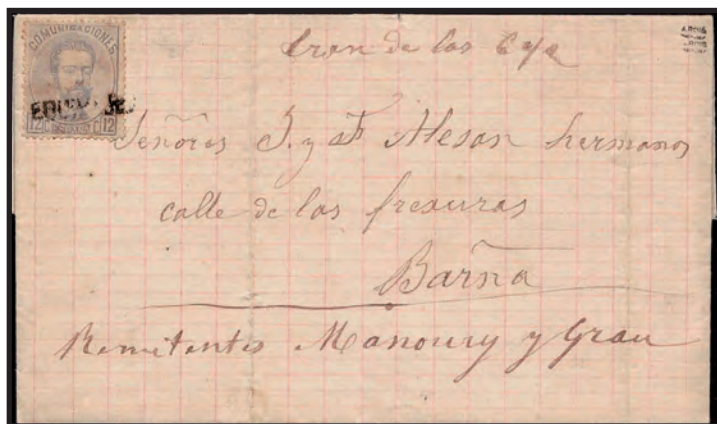 COMUNICACIONES
12 Cs ESPAÑA Cs 12
tron de las
Señores J. y Alesan hermanos
calle de las frexuras
Barña
Remitentes Manoury y Grau